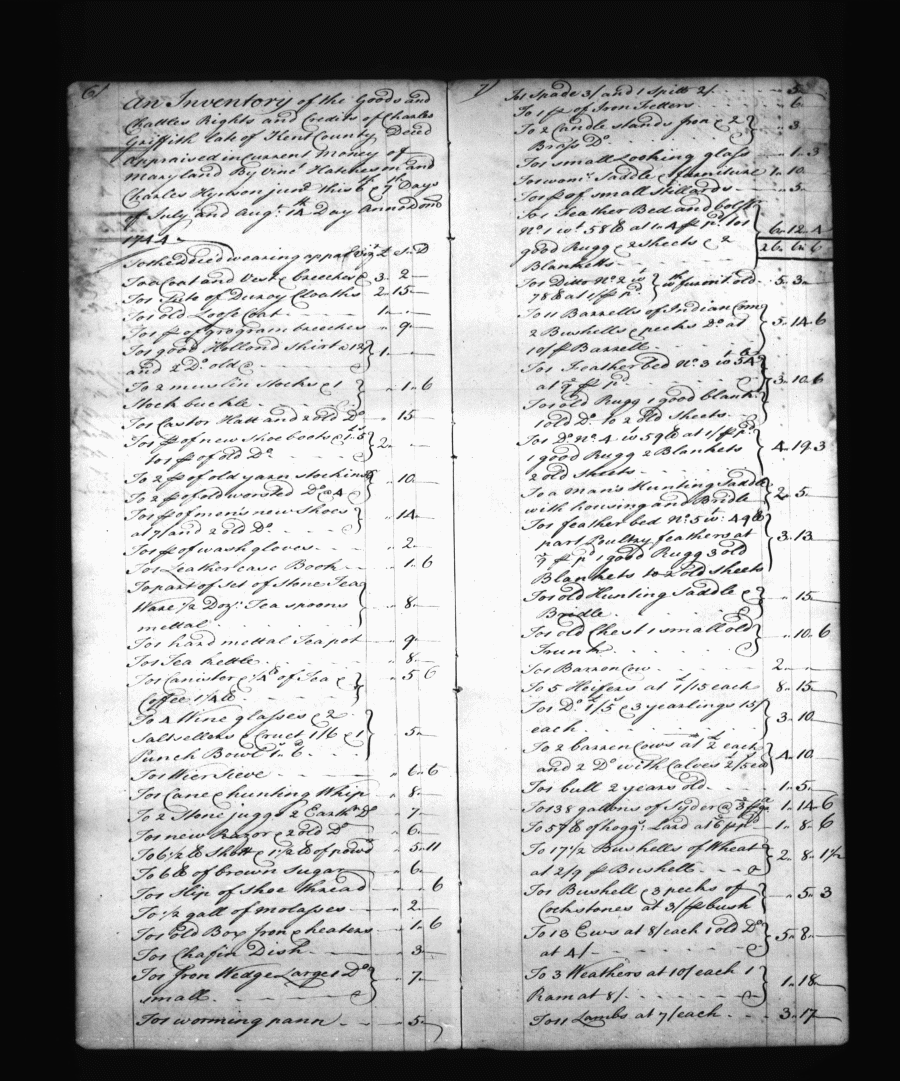 6/
An Inventory of the Goods and
Chattles Rights and Credits of Charles
Griffith late of Kent County Deced
Appraised in current money of
Maryland By Vinct Hatcheson and
Charles Hynson junr this 6th & 7th Days
of July and Augt 14th Day Annodom
1744
To the Deced wearing apparl vizt £ S. D
To a Coat and Vest & breeches 3 .. 2 —
To 1 Sute of Duroy Cloaths 2 .. 15 —
To 1 old Loose Coat 1 .. —
To 1 pr of Grogram breeches .. 9 —
To 1 good Holland Shirt a 12/
and 2 Do old 1 — —
To 2 muslin Stocks & 1
Stock buckle .. 1 .. 6
To 1 Castor Hatt and 2 old Do .. 15
To 1 pr of new Shoe boots
to 1 pr of old Do 2 ..
To 2 pr of old yarn stockings
To 2 pr of old worsted Do @ 4 .. 10
To 1 pr of men's new Shoes
at 7/ and 2 old Do .. 14
To 1 pr of wash gloves .. 2 —
To 1 Leather case Book .. 1 .. 6
To part of Set of Stone Tea
Ware 1/2 Doz: Tea spoons
mettal .. 8 —
To 1 hard mettal Teapot .. 9 —
To 1 Tea kettle .. 8 —
To 1 Canister & 1/4 lb of Tea &
Coffee 1/4 lb .. 5 6
To 4 Wine glasses & 2
Saltsellers & Cruet 1/6 & 1
Punch Bowl .. 5 —
To 1 Wier Sieve .. 6 .. 6
To 1 Cane & hunting Whip .. 8 —
To 2 Stone juggs 2 Earthn Do .. 7 —
To 1 new Razor & 2 old Do .. 6 —
To 6 1/2 lb Shott & 1 1/2 lb of powdr .. 5 .. 11
To 6 lb of brown Sugar .. 6 —
To 1 Slip of Shoe Thread .. 6
To 1/2 gall of molasses .. 2 —
To 1 old Box Iron & heaters .. 1 .. 6
To 1 Chafin Dish .. 3 —
To 1 Iron Wedge Large 1 Do
small .. 7 —
To 1 worming pann .. 5 —
7/
To 1 Spade 3/ and 1 Spitt 2/ .. 5 —
To 1 pr of Iron Fetters .. 6
To 2 Candle stands Iron & 2
Brass Do .. 3
To 1 small Looking glass .. 1 .. 3
To 1 womn Saddle & furniture 1 .. 10
To 1 pr of small Stillards .. 5 —
To 1 Feather Bed and bolstr
No 1 wt 58 lb at 1..4 pr pd 1
good Rugg & 2 sheets & 2
Blanketts 6 .. 12 .. 4
26 .. 6 .. 6
To 1 Ditto No 2 wt
78 lb at 1/ pr pd with furnit old 5 .. 3 —
To 11 Barrells of Indian Corn
2 Bushells & pecks Do at
10/ pr Barrell 5 .. 14 .. 6
To 1 Feather bed No 3 wt 54
at 9d pr pd
To 1 old Rugg 1 good blankt
1 old Do to 2 old Sheets 3 .. 10 .. 6
To 1 Do No 4 wt 59 lb at 1/ pr pd
1 good Rugg 2 Blanketts
2 old Sheets 4 .. 19 .. 3
To a Man's Hunting Saddle
with housing and Bridle 2 .. 5 —
To 1 feather bed No 5 wt 49 lb
part Poultry feathers at
pr pd 1 good Rugg 3 old
Blanketts to 2 old Sheets 3 .. 13 —
To 1 old Hunting Saddle &
Bridle .. 15 —
To 1 old Chest 1 small old
Trunk .. 10 .. 6
To 1 Barren Cow 2 .. —
To 5 Heifers at 1/15 each 8 .. 15 —
To 1 Do 1/5 & 3 yearlings 15/
each 3 .. 10
To 2 barren Cows at 2 each
and 2 Do with Calves 2/5 ea 4 .. 10
To 1 bull 2 years old 1 .. 5 —
To 138 gallons of Syder @ 3d pr 1 .. 14 .. 6
To 57 lb of hoggs Lard at 6d pr pd 1 .. 8 .. 6
To 17 1/2 Bushells of Wheat
at 2/9 pr Bushell 2 .. 8 .. 1 1/2
To 1 Bushell & 3 pecks of
Cockstones at 3/ pr bush .. 5 .. 3
To 13 Ews at 8/ each 1 old Do
at 4/ 5 .. 8 —
To 3 Weathers at 10/ each 1
Ram at 8/ 1 .. 18 —
To 11 Lambs at 7/ each 3 .. 17 —